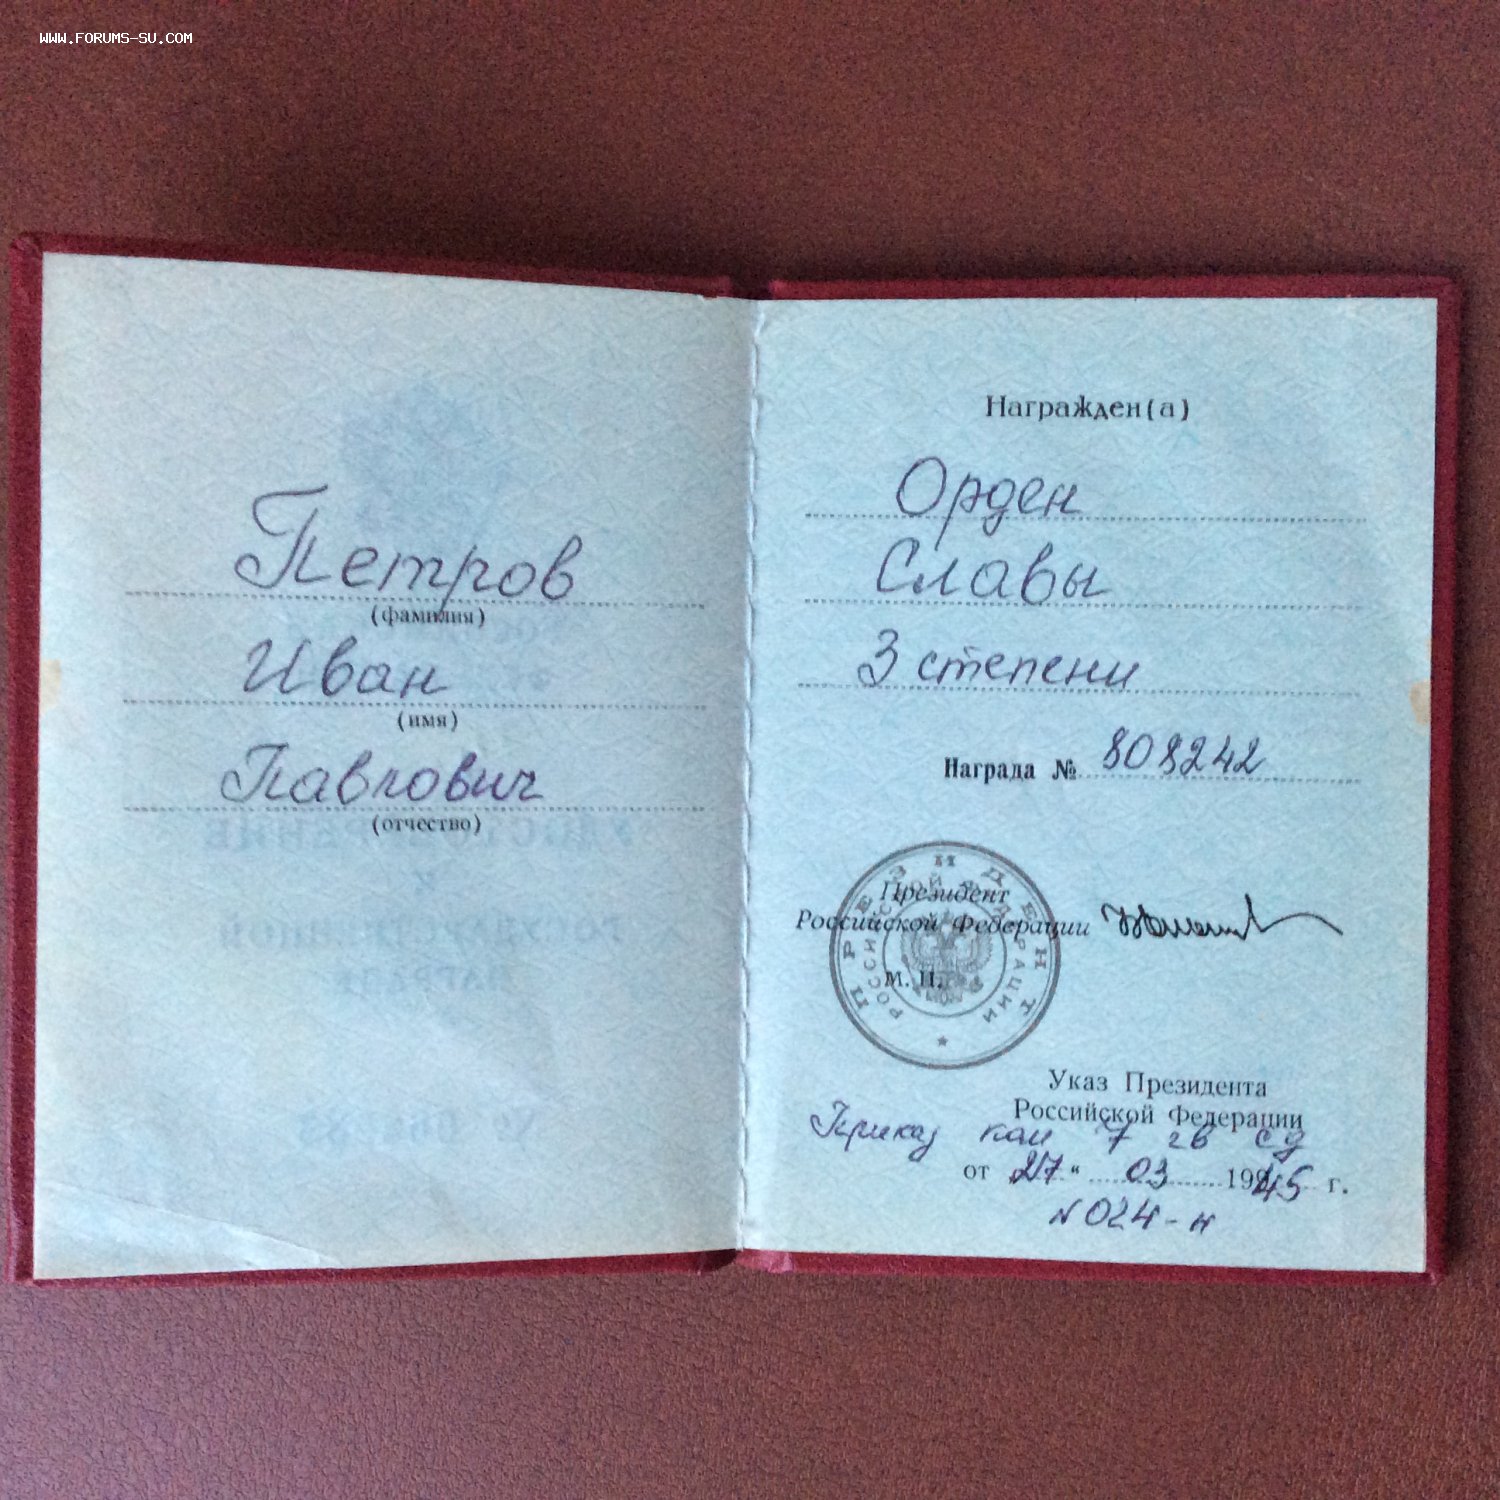 WWW.FORUMS-SU.COM
Петров
(фамилия)
Иван
(имя)
Павлович
(отчество)
Награжден(а)
Орден
Славы
3 степени
Награда № 808242
ПРЕЗИДЕНТ
РОССИЙСКОЙ ФЕДЕРАЦИИ
Президент
Российской Федерации
М. П.
Указ Президента
Российской Федерации
Приказ 7 гв сд
от 27 " 03 1945 г.
N 024-н